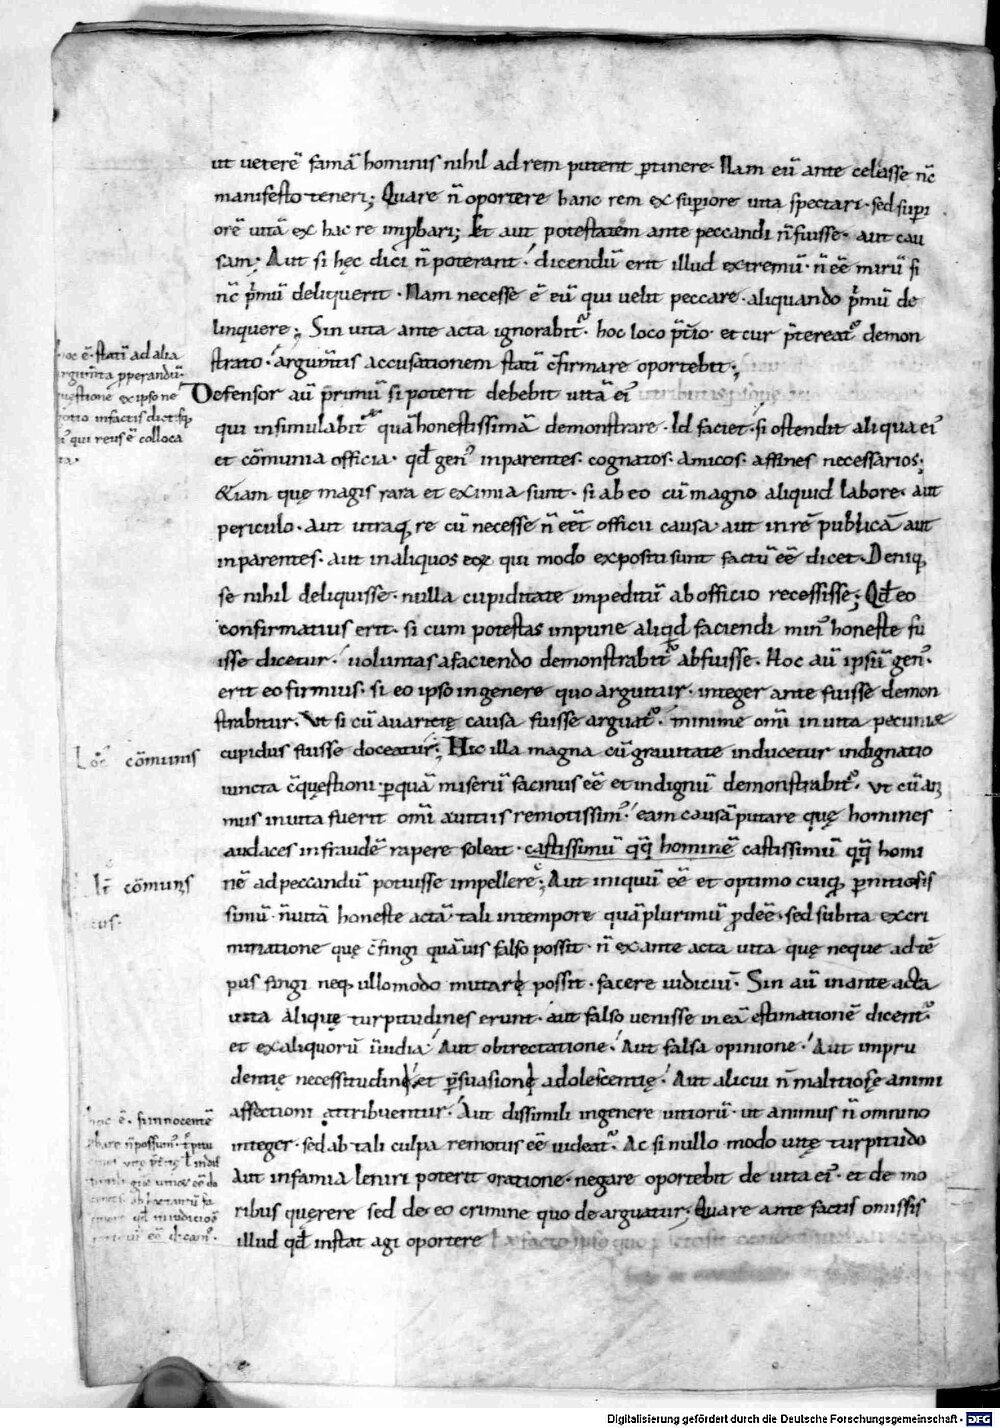 ut veterē famā hominis nihil ad rem putent ꝑtinere. Nam eū ante celasse nc̄
manifesto teneri; Quare n̄ oportere hanc rem ex supiore vita spectari. sed supi
orē vitā ex hac re imꝓbari; Et aut potestatem ante peccandi n̄ fuisse. aut cau
sam; Aut si hęc dici n̄ poterant. dicendū erit illud extremū. n̄ eē mirū si
nc̄ p̄mū deliquerit. Nam necesse ē eū qui velit peccare. aliquando p̄mū de
linquere; Sin vita ante acta ignorabit᷑. hoc loco p̄t̄io. et cur p̄tereat᷑ demon
strato. argum̄tis accusationem statī c̄firmare oportebit;
Defensor aū primū si poterit debebit vitā eī
qui insimulabit᷑ quā honestissimā demonstrare. Id faciet. si ostendit aliqua eī
et cōmunia officia. qđ gen᷒ in parentes. cognatos. amicos. affines necessarios;
&iam quę magis rara et eximia sunt. si ab eo cū magno aliquid labore. aut
periculo. aut utraq; re cū necesse n̄ eēt officii causa. aut in rē publicā aut
in parentes. aut in aliquos eoꝝ qui modo expositi sunt factū eē dicet. Deniq;
se nihil deliquisse. nulla cupiditate impeditū ab officio recessisse; Qđ eo
confirmatius erit. si cum potestas impune aliqd faciendi min᷒ honeste fu
isse dicetur. voluntas a faciendo demonstrabit᷑ abfuisse. Hoc aū ipsū gen᷒.
erit eo firmius. si eo ipso in genere quo arguitur. integer ante fuisse demon
strabitur. Ut si cū avaritię causa fuisse arguat᷑. minime omī in vita pecunię
cupidus fuisse doceatur; Hic illa magna cū gravitate inducetur indignatio
iuncta c̄quęstioni. ꝑ quā miserū facinus eē et indignū demonstrabit᷑. Ut cū ani
mus in vita fuerit omī a vitiis remotissim᷒. eam causā putare quę homines
audaces in fraudē rapere soleat. castissimū qq̄ hominē castissimū qq̄ homi
nē ad peccandū potuisse impellere; Aut iniquū eē et optimo cuiq; ꝑnitiosis
simū. n̄ vitā honeste actā tali in tempore quā plurimū ꝓdeē. sed subita ex cri
minatione quę c̄fingi quāvis falso possit. n̄ ex ante acta vita quę neque ad tē
pus fingi neq; ullo modo mutari possit. facere iudiciū. Sin aū in ante acta
vita alique turpitudines erunt. aut falso venisse in eā estimationē dicent᷑.
et ex aliquorū īvidia. Aut obtrectatione. Aut falsa opinione. Aut impru
dentię necessitudini et p̄suasioni adolescentię. Aut alicui n̄ malitiosę animi
affectioni attribuentur. Aut dissimili in genere vitiorū. ut animus n̄ omnino
integer. sed ab tali culpa remotus eē videat᷑. Ac si nullo modo vitę turpitudo
Aut infamia leniri poterit oratione. negare oportebit de vita eī. et de mo
ribus quęrere sed de eo crimine quo de arguatur; Quare ante factis omissis
illud qđ instat agi oportere
hoc ē. statī ad alia
argum̄ta ꝓperandū.
quęstione ex ipso ne
gotio in factis dictisq;
ī qui reus ē colloca
ta.
Loc᷒ cōmunis
It̄ cōmunis
locus.
hoc ē. si innocentē